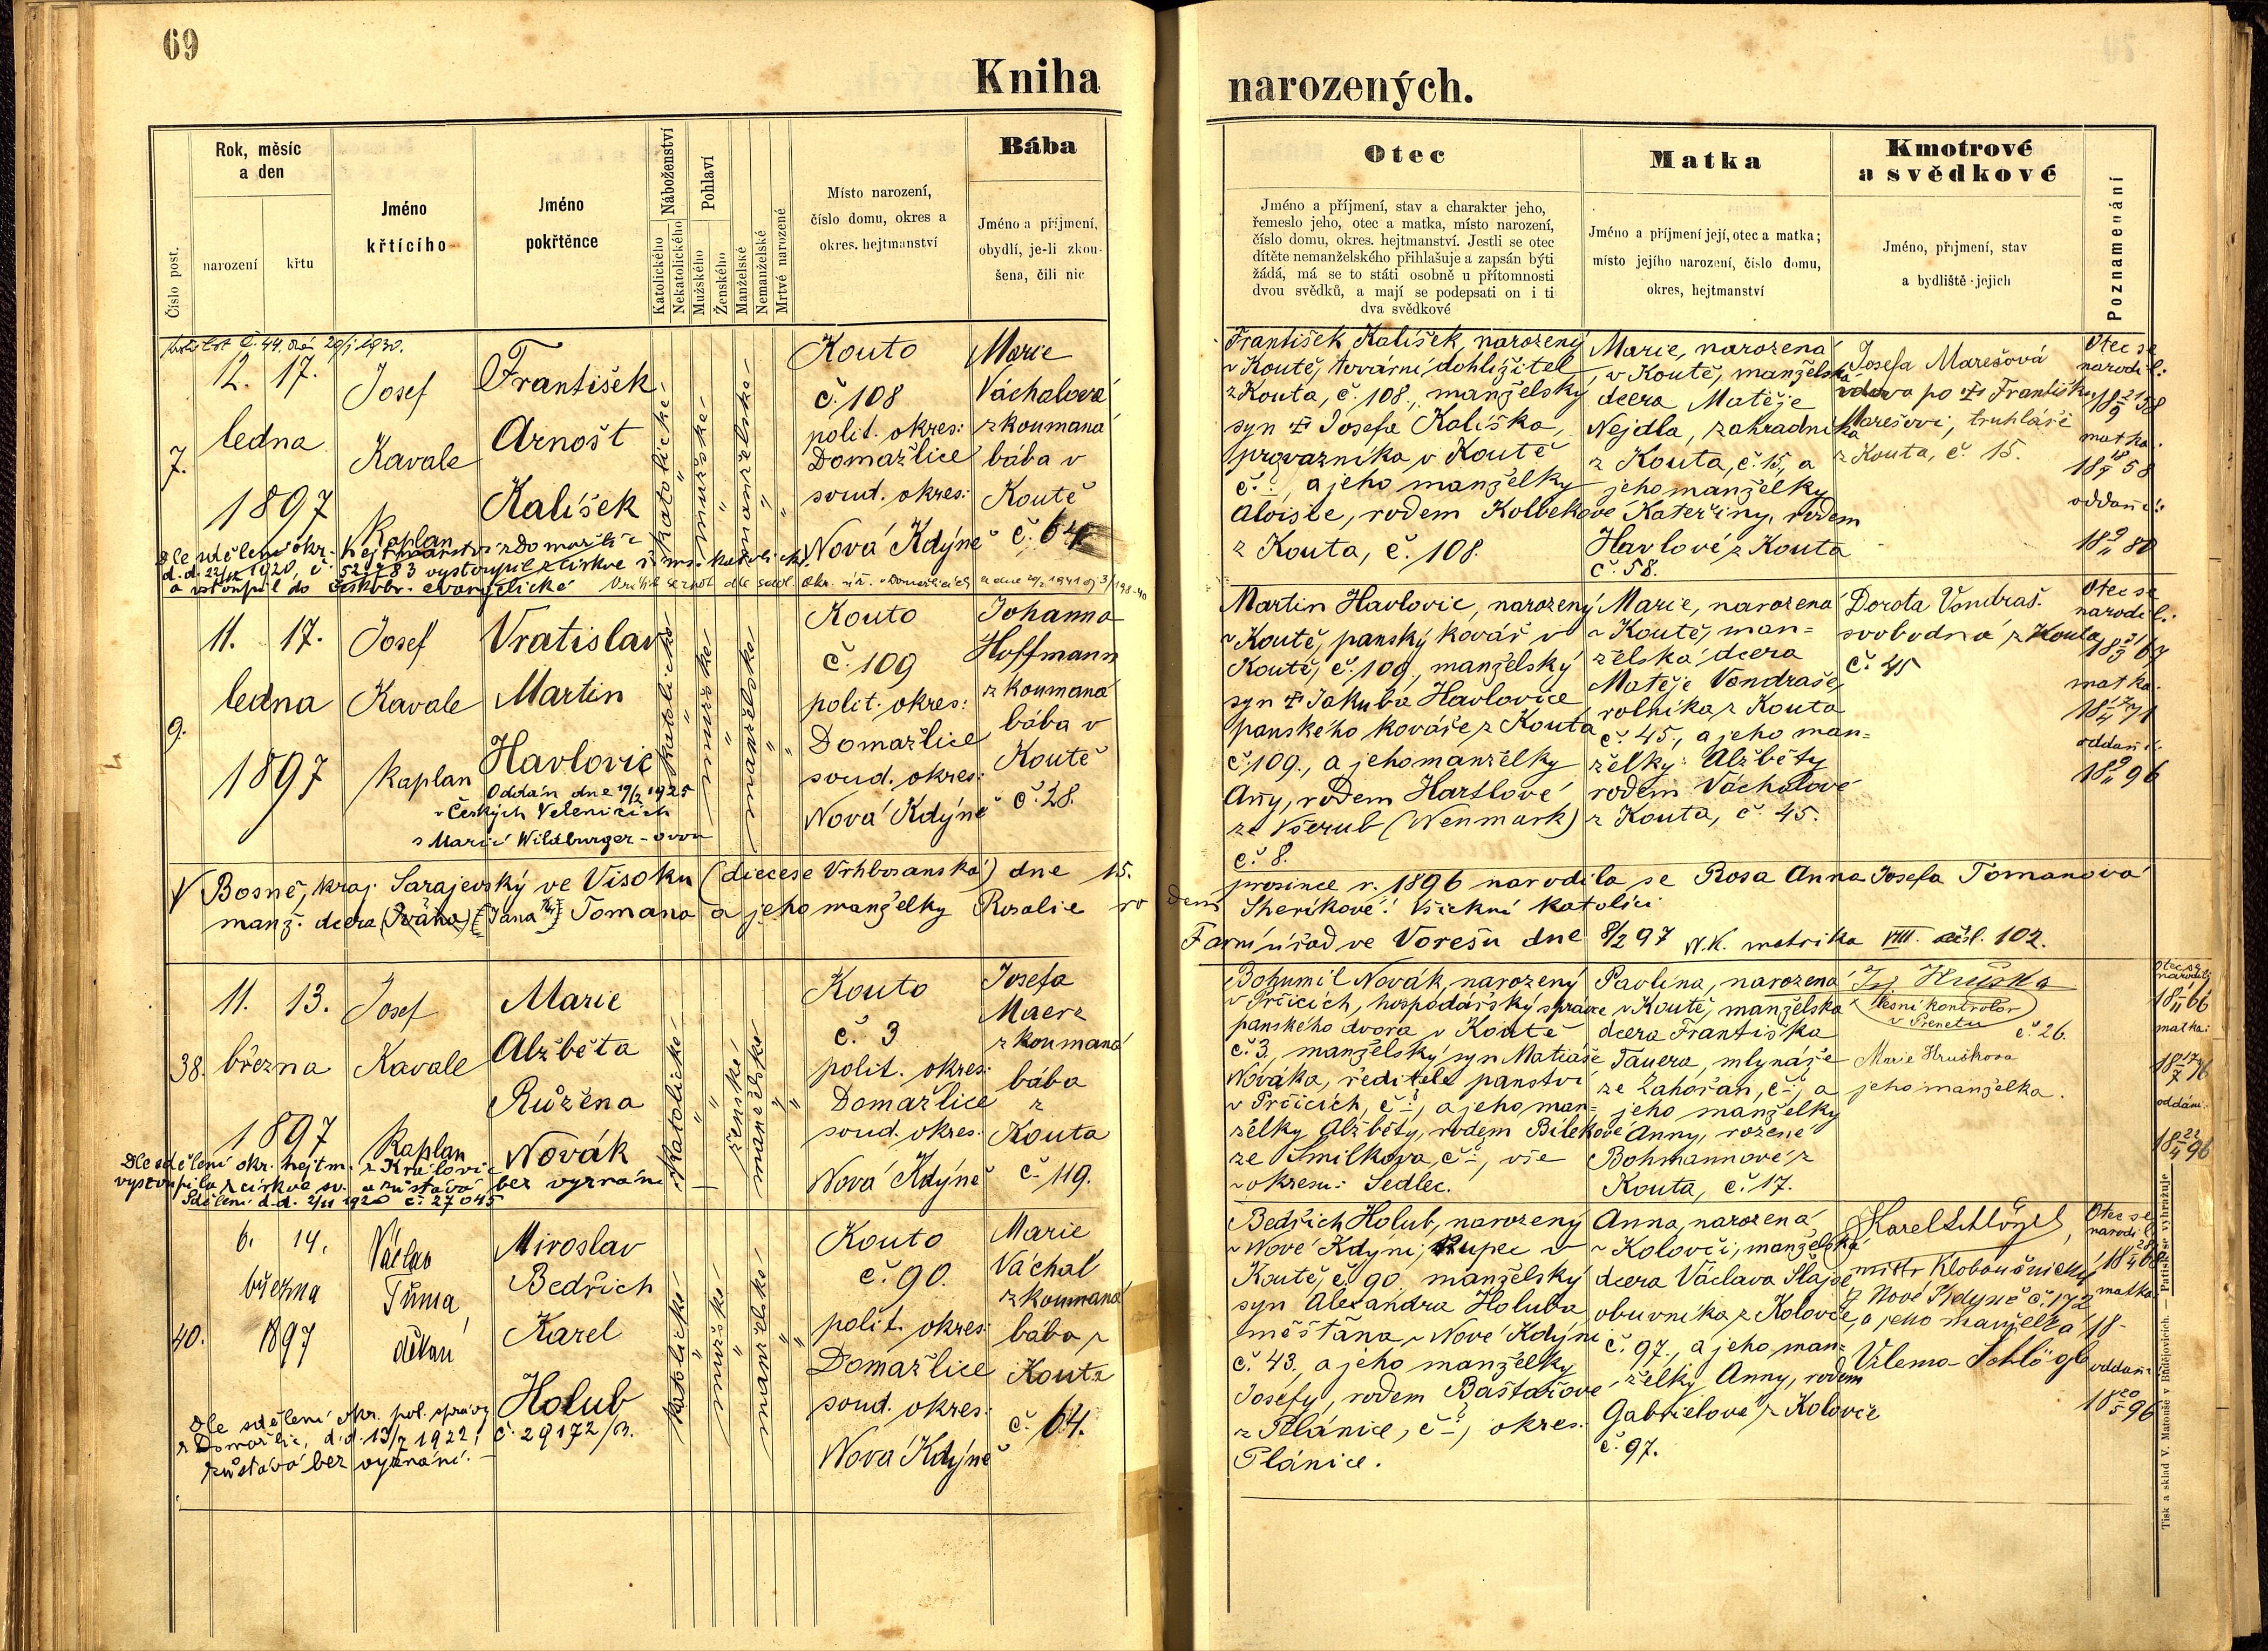 69
Kniha
narozených.
Číslo post.
Rok, měsíc
a den
narození
křtu
Jméno
křtícího
Jméno
pokřtěnce
Náboženství
Katolického
Nekatolického
Pohlaví
Mužského
Ženského
Manželské
Nemanželské
Mrtvě narozené
Místo narození,
číslo domu, okres a
okres. hejtmanství
Bába
Jméno a příjmení,
obydlí, je-li zkou-
šena, čili nic
Otec
Jméno a příjmení, stav a charakter jeho,
řemeslo jeho, otec a matka, místo narození,
číslo domu, okres. hejtmanství. Jestli se otec
dítěte nemanželského přihlašuje a zapsán býti
žádá, má se to státi osobně u přítomnosti
dvou svědků, a mají se podepsati on i ti
dva svědkové
Matka
Jméno a příjmení její, otec a matka;
místo jejího narození, číslo domu,
okres, hejtmanství
Kmotrové
a svědkové
Jméno, příjmení, stav
a bydliště jejich
Poznamenání
7.
12. 17.
ledna
1897
Josef
Kavale
Kaplan
František
Arnošt
Kalíšek
katolické
mužské
manželské
Kouto
č. 108
polit. okres:
Domažlice
soud. okres:
Nová Kdýně
Marie
Váchalová
zkoumaná
bába v
Koutě
č. 64
František Kalíšek, narozený
v Koutě, tovární dohlížitel
z Kouta, č. 108., manželský
syn † Josefa Kalíška,
provazníka v Koutě
č. , a jeho manželky
Aloisie, rodem Kolbekové
z Kouta, č. 108.
Marie, narozená
v Koutě, manželská
dcera Matěje
Nejdla, zahradníka
z Kouta, č. 15, a
jeho manželky
Kateřiny, rodem
Havlové z Kouta
č. 58.
Josefa Marešová
vdova po † Františku
Marešovi, truhláři
z Kouta, č. 15.
Otec se
narodil:
matka:
oddani:
Dle sdělení okr. hejtmanství z Domažlic
1920, č. 52983 vystoupil z církve řím. katolické
a vstoupil do českobr. evangelické
9.
11. 17.
ledna
1897
Josef
Kavale
Kaplan
Vratislav
Martin
Havlovic
Oddán dne 19/2 1925
v Českých Velenicích
s Marií Wildburger-ovou
katolické
mužské
manželské
Kouto
č. 109
polit. okres:
Domažlice
soud. okres:
Nová Kdýně
Johanna
Hoffmann
zkoumaná
bába v
Koutě
č. 28.
Martin Havlovic, narozený
v Koutě, panský kovář v
Koutě, č. 109., manželský
syn † Jakuba Havlovice
panského kováře z Kouta
č. 109., a jeho manželky
Anny, rodem Hartlové
ze Všerub (Neumark)
č. 8.
Marie, narozená
v Koutě, man-
želská dcera
Matěje Vondraše,
rolníka z Kouta
č. 45., a jeho man-
želky Alžběty
rodem Váchalové
z Kouta, č. 45.
Dorota Vondraš.
svobodná z Kouta
č. 45
Otec se
narodil:
matka:
oddani:
V Bosně, kraj. Sarajevský ve Visoku (diecese Vrhbosanská) dne 15. prosince r. 1896 narodila se Rosa Anna Josefa Tomanova
manž. dcera (Ivana) [Jana] Tomana a jeho manželky Rosalie rodem Sheríkové! Všickni katolíci
Farní úřad ve Vorešu dne 8/2 97 N.K. matrika VIII. čísl. 102.
38.
11. 13.
března
1897
Josef
Kavale
Kaplan
Marie
Alžběta
Růžena
Novák
katolické
ženské
manželské
Kouto
č. 3
polit. okres:
Domažlice
soud. okres:
Nová Kdýně
Josefa
Maerz
zkoumaná
bába
z
Kouta
č. 119.
Bohumil Novák, narozený
v Prčicích, hospodářský správce
panského dvora v Koutě
č. 3., manželský syn Matiáše
Nováka, ředitele panství
v Prčicích, č. , a jeho man-
želky Alžběty, rodem Bílekové
ze Smilkova, č. , vše
v okresu: Sedlec.
Pavlína, narozená
v Koutě, manželská
dcera Františka
Tauera, mlynáře
ze Zahořan, č. , a
jeho manželky
Anny, rozené
Bohmannové z
Kouta, č. 17.
Hruška
lesní kontrolor
v Prenetu č. 26.
Marie Hrušková
jeho manželka.
Otec se
narodil:
matka:
oddáni:
Dle sdělení okr. hejtm. z Královic
vystoupila z církve sv. a zůstává bez vyznání
Sdělení d.d. 2/11 1920 č. 27045
40.
6. 14.
března
1897
Václav
Tůma,
děkan
Miroslav
Bedřich
Karel
Holub
katolické
mužské
manželské
Kouto
č. 90.
polit. okres:
Domažlice
soud. okres:
Nová Kdýně
Marie
Váchal
zkoumaná
bába z
Kouta
č. 64.
Bedřich Holub, narozený
v Nové Kdýni, kupec v
Koutě, č. 90. manželský
syn Alexandra Holuba
měšťana v Nové Kdýni
č. 43., a jeho manželky
Josefy, rodem Baštářové
z Plánice, č. , okres:
Plánice.
Anna, narozená
v Kolovči, manželská
dcera Václava Šlajse
obuvníka z Kolovče,
č. 97., a jeho man-
želky Anny, rodem
Gabrielové z Kolovče
č. 97.
Karel Schlögl,
mistr kloboučnický
z Nové Kdyně č. 172
a jeho manželka
Vilema Schlögl
Otec se
narodil
matka
18-
oddani
Dle sdělení okr. pol. správy
z Domažlic, d.d. 13/7 1922, č. 29172/B.
zůstává bez vyznání.
Tisk a sklad V. Matouše v Budějovicích. — Patisk se vyhražuje